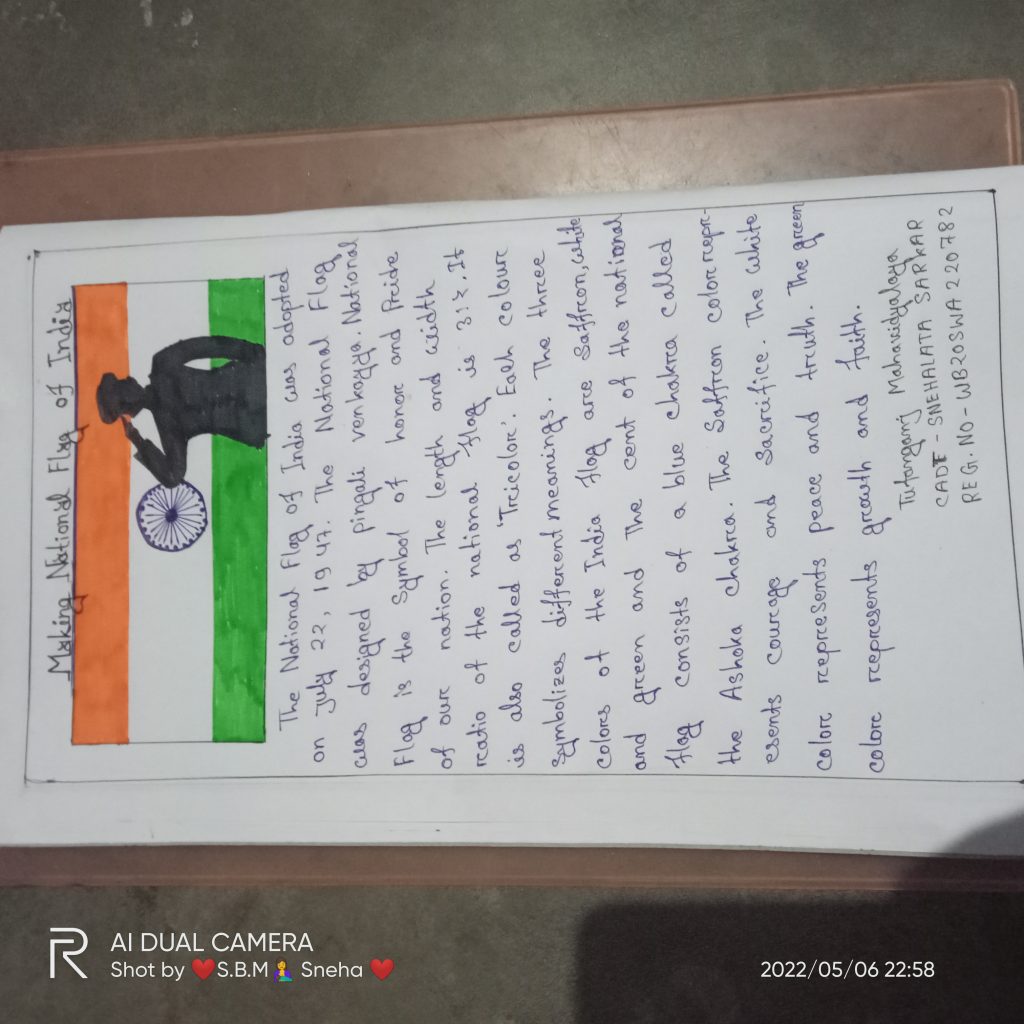 Making National Flag of India
The National Flag of India was adopted
on July 22, 1947. The National Flag
was designed by pingali venkayya. National
Flag is the Symbol of honor and Pride
of our nation. The length and width
ratio of the national flag is 3:2. It
is also called as 'Tricolor'. Each colour
Symbolizes different meanings. The three
colors of the India flag are Saffron, white
and green and The cent of the national
flag consists of a blue chakra called
the Ashoka chakra. The Saffron color repr-
esents courage and Sacrifice. The white
color represents peace and truth. The green
color represents growth and faith.
Tufanganj Mahavidyalaya
CADT - SNEHALATA SARKAR
REG. NO - WB20SWA220782
AI DUAL CAMERA
Shot by ❤️S.B.M🤦‍♀️ Sneha ❤️
2022/05/06 22:58